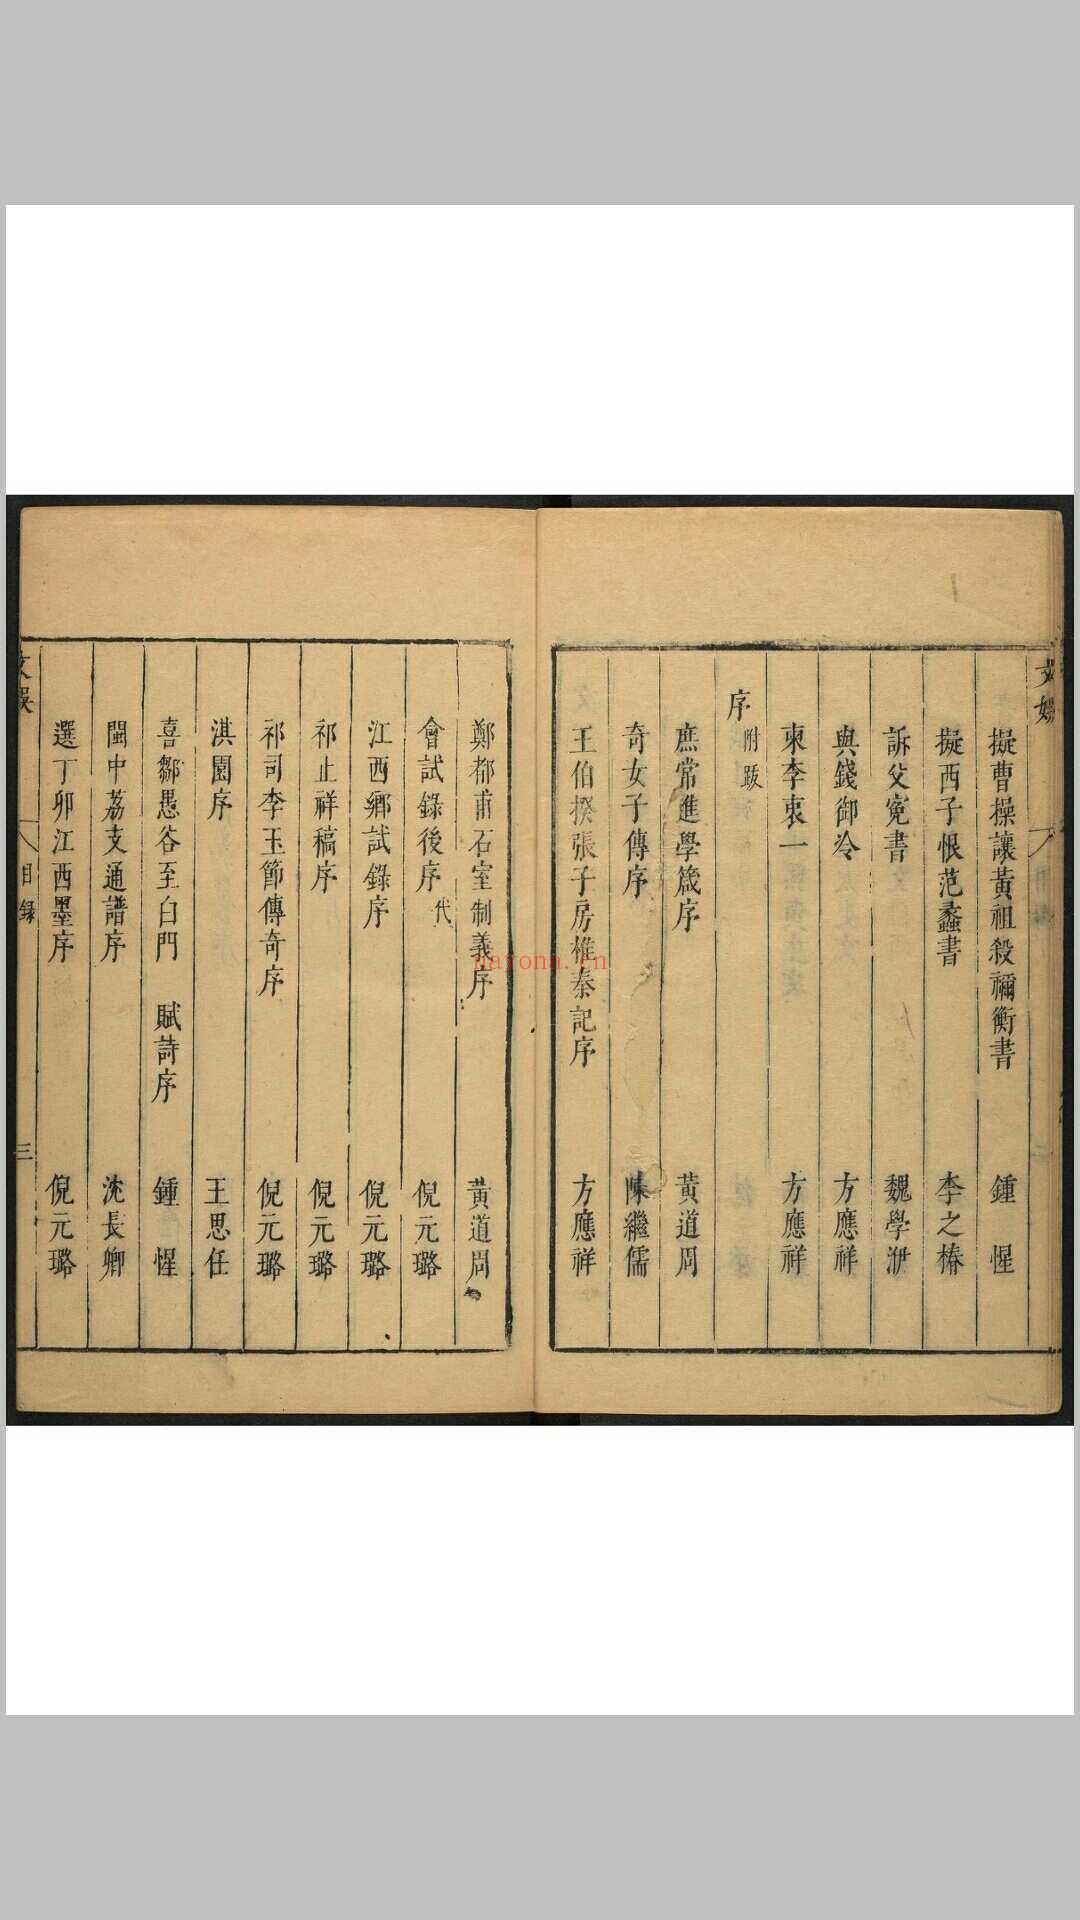 擬曹操讓黃祖殺禰衡書 鍾惺
擬西子恨范蠡書 李之椿
訴父寃書 魏學洢
與錢御冷 方應祥
柬李衷一 方應祥
序 附跋
庶常進學箴序 黃道周
奇女子傳序 陳繼儒
王伯揆張子房椎秦記序 方應祥
鄭都甫石室制義序 黃道周
會試錄後序 代 倪元璐
江西鄉試錄序 倪元璐
祁止祥稿序 倪元璐
祁司李玉節傳奇序 倪元璐
淇園序 王思任
喜鄒愚谷至白門 賦詩序 鍾惺
閩中荔支通譜序 沈長卿
選丁卯江西墨序 倪元璐
目錄
三
nayona.cn